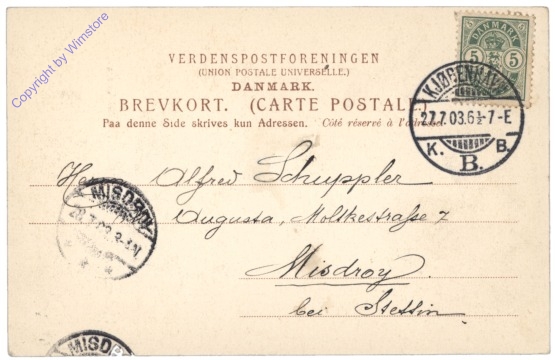 Copyright by Wimstore
VERDENSPOSTFORENINGEN
(UNION POSTALE UNIVERSELLE.)
DANMARK.
BREVKORT. (CARTE POSTALE)
Paa denne Side skrives kun Adressen. Côté réservé à l'adresse.
DANMARK
5 5
KJØBENHAVN
27.7.03.6½-7-E
K. B. B.
Herrn Alfred Schuppler
Augusta, Moltkestraße 7
Misdroy.
bei Stettin
MISDROY
MISDROY